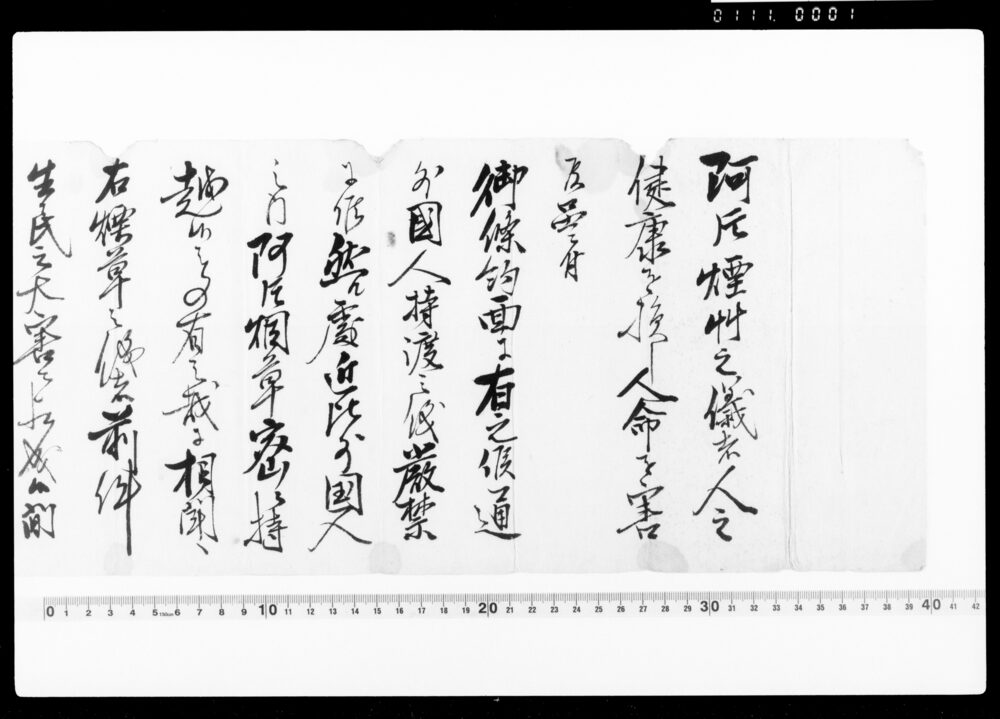 0111. 0001
阿片煙艸之儀者人之
健康を損し人命を害
御條約面に有之候通
外國人持渡之儀嚴禁
候然處近比外国人
之内阿片烟草密に持
越候もの有之哉に相聞
右煙草之儀者前件
生民之大害と相成候間
0 1 2 3 4 5 6 7 8 9 10 11 12 13 14 15 16 17 18 19 20 21 22 23 24 25 26 27 28 29 30 31 32 33 34 35 36 37 38 39 40 41 42